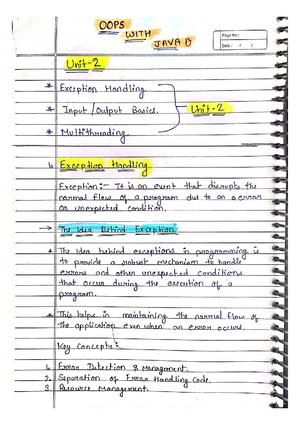 OOPS
WITH
JAVA
Page No:
Date: / /
Unit-2
* Exception Handling.
* Input/Output Basics.
Unit-2
* Multithreading.
Exception Handling
Exception:- It is an event that disrupts the
normal flow of a program due to an error
or unexpected condition.
→ The Idea Behind Exception
* The idea behind exceptions in programming is
to provide a robust mechanism to handle
errors and other unexpected conditions
that occur during the execution of a
program.
* This helps in maintaining the normal flow of
the application even when an error occurs.
Key Concepts:
1. Error Detection & Management.
2. Separation of Error Handling Code.
3. Resource Management.